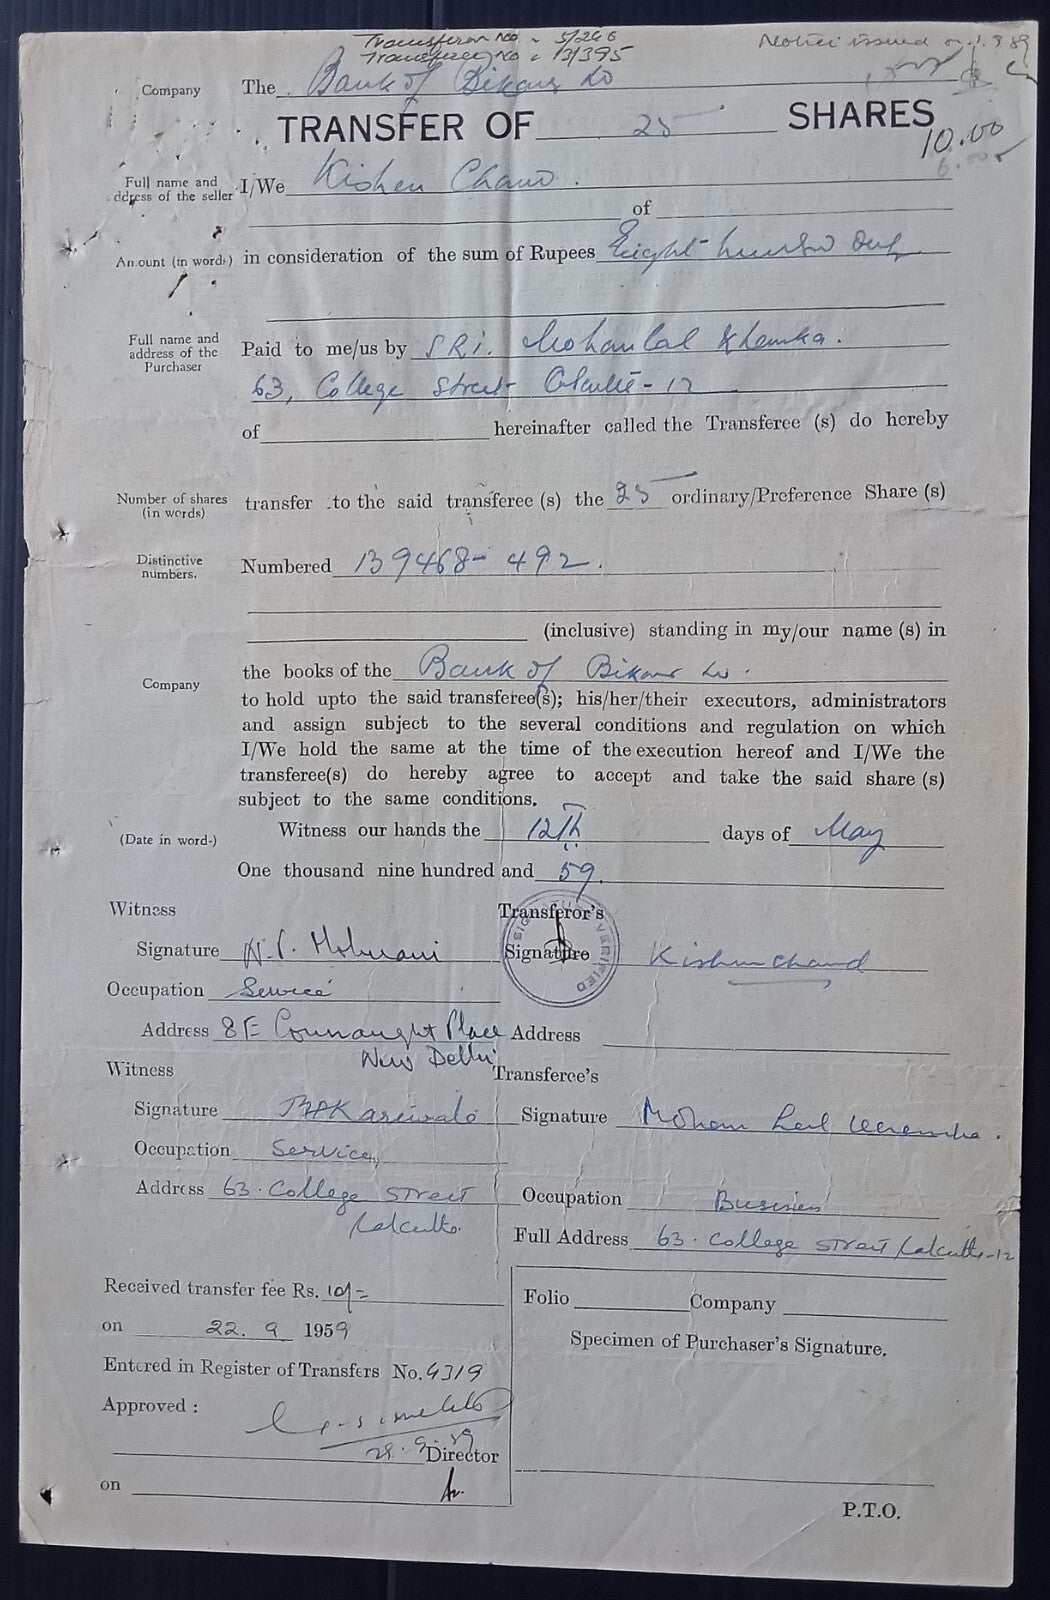 Transferor No - 5/266
Transferee No - 13/395
Notice issued on 1.9.59
Company The Bank of Bikaner Ld
TRANSFER OF 25 SHARES
10.00
Full name and
address of the seller I/We Kishen Chand.
of
Amount (in words) in consideration of the sum of Rupees Eight hundred only
Full name and
address of the
Purchaser
Paid to me/us by SRi. Mohanlal Khemka.
63, College Street Calcutta-12
of hereinafter called the Transferee (s) do hereby
Number of shares
(in words)
transfer to the said transferee (s) the 25 ordinary/Preference Share (s)
Distinctive
numbers.
Numbered 139468-492.
(inclusive) standing in my/our name (s) in
Company the books of the Bank of Bikaner Ld.
to hold upto the said transferee(s); his/her/their executors, administrators
and assign subject to the several conditions and regulation on which
I/We hold the same at the time of the execution hereof and I/We the
transferee(s) do hereby agree to accept and take the said share (s)
subject to the same conditions.
(Date in word-) Witness our hands the 12th days of May
One thousand nine hundred and 59.
Witness Transferor's
Signature Signature Kishanchand
SIGNATURE VERIFIED
Occupation Service
Address 8E Connaught Place Address
New Delhi
Witness Transferee's
Signature Signature Mohan Lal Khemka.
Occupation Service
Address 63. College Street Occupation Business
Calcutta.
Full Address 63. College Street Calcutta-12
Received transfer fee Rs. 10/-
Folio Company
on 22. 9 1959
Specimen of Purchaser's Signature.
Entered in Register of Transfers No. 4319
Approved :
28.9.59
Director
on
P.T.O.